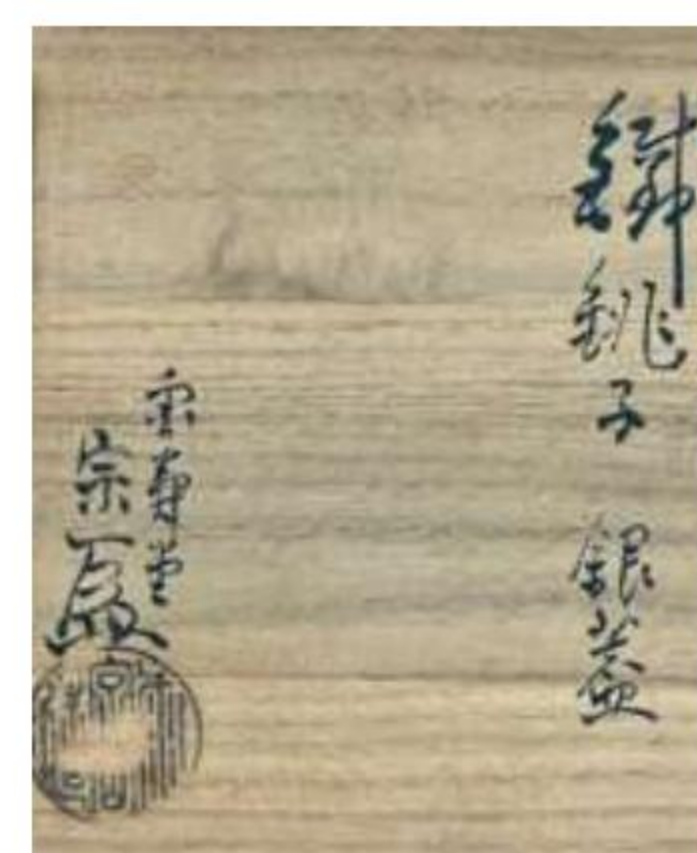 鐵銚子　銀蓋
雲寿堂
宗